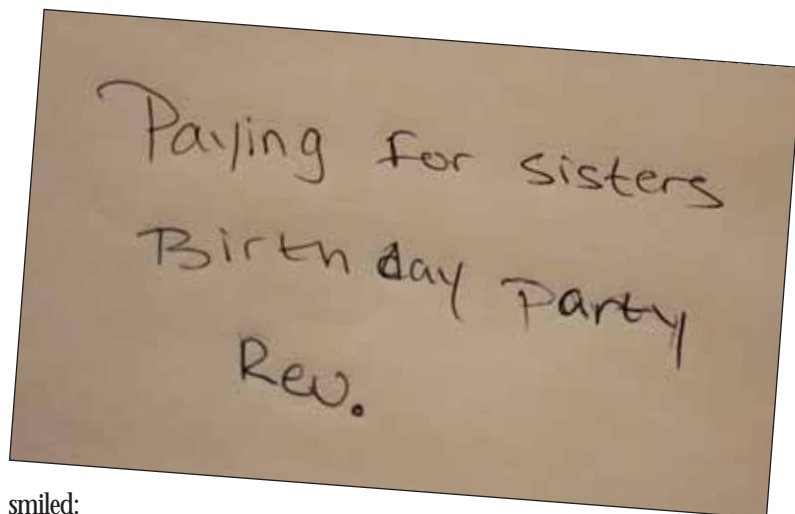 Paying for sisters
Birthday Party
Rev.
smiled: